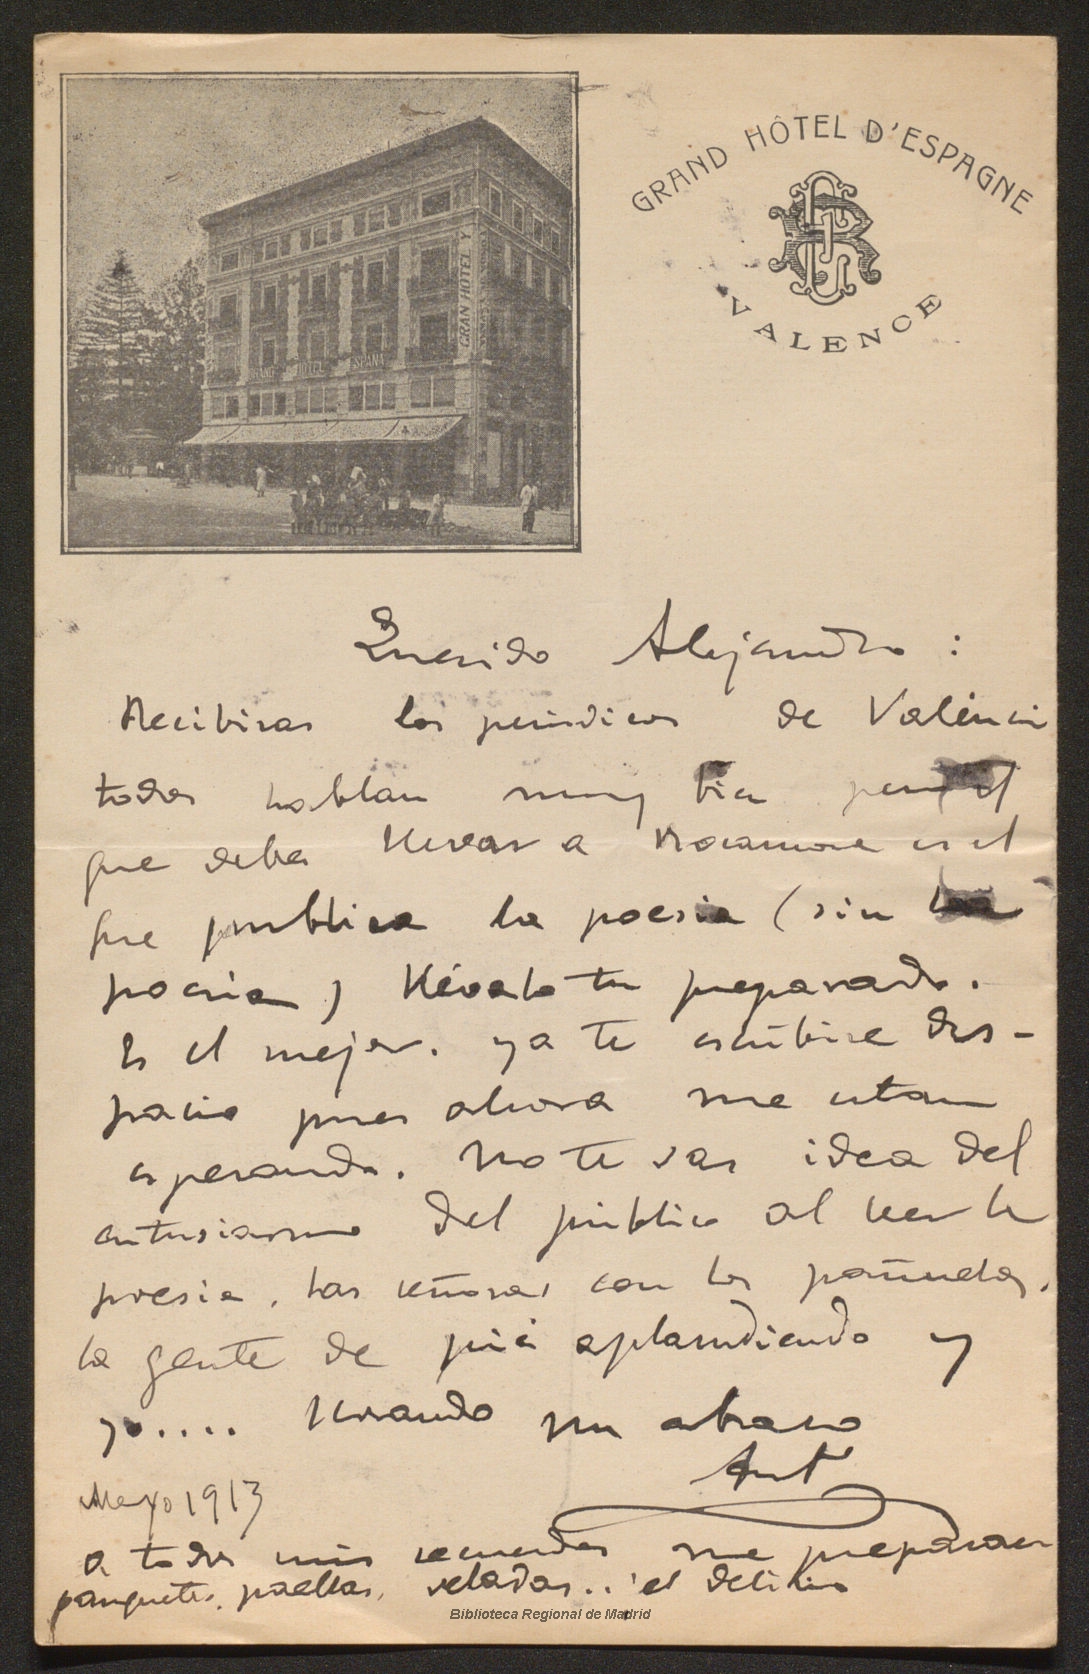 GRAND HÔTEL D'ESPAGNE
VALENCE
GRAN HOTEL Y
GRAND HOTEL ESPAÑA
Querido Alejandro :
Recibiras los periodicos de Valencia
todos hablan muy bien pero el
que debes llevar a Rocamora es el
que publica la poesia (sin la
poesia) llévalo tu preparado.
Es el mejor. ya te escribire des-
pacio pues ahora me estan
esperando. No te das idea del
entusiasmo del publico al leer la
poesia. las señoras con los pañuelos,
la gente de pié aplaudiendo y
yo.... llorando un abrazo
Ant
Mayo 1913
a todos mis recuerdos me preparan
banquetes, paellas, veladas... el delirio
Biblioteca Regional de Madrid